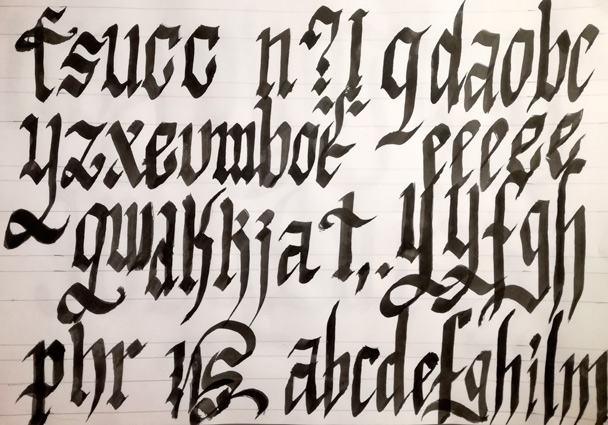 fsucc n?! gdaobc
yzxevmboe eeeee
gwakkja t,. yyfgh
phr ns abcdefghilm